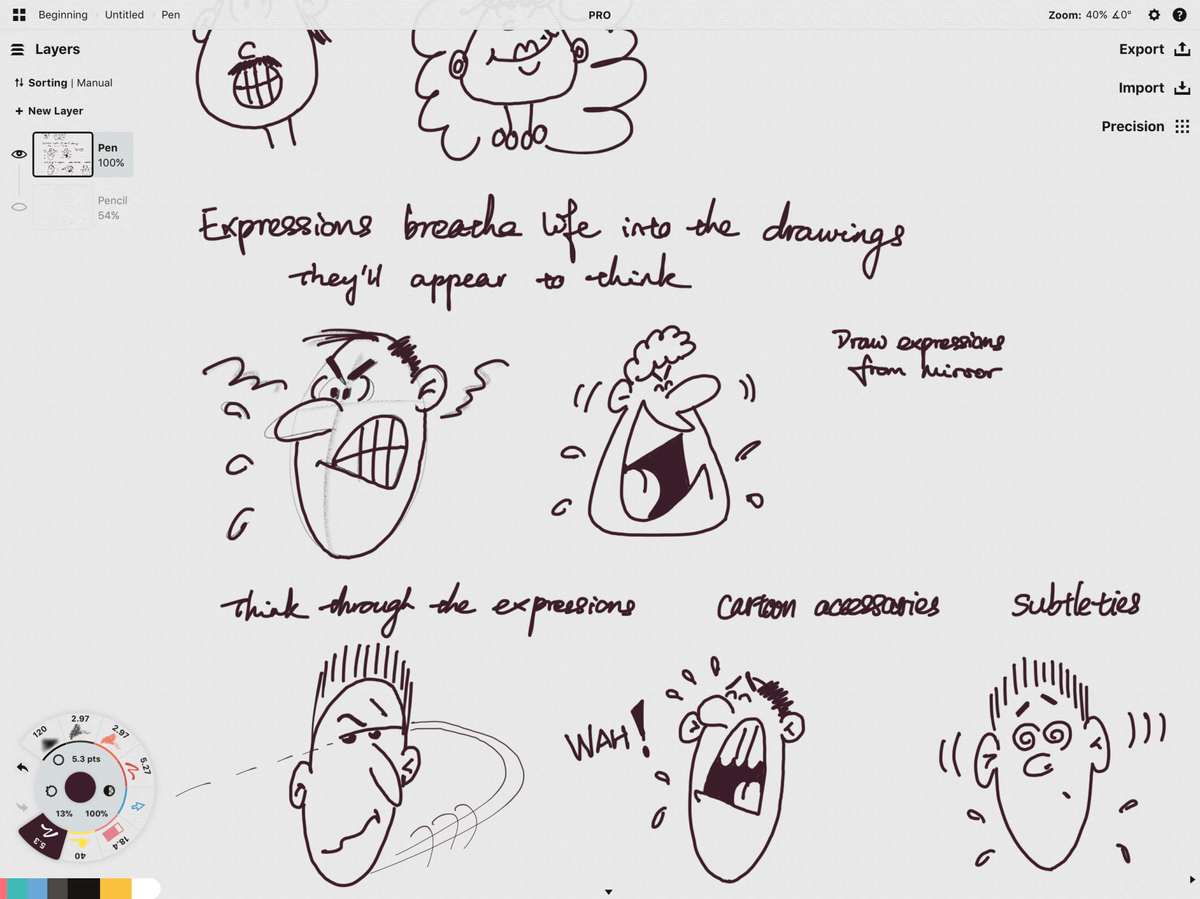 Beginning
Untitled
Pen
PRO
Zoom: 40% ∡0°
Layers
Export
Sorting | Manual
Import
+ New Layer
Precision
Pen
100%
Pencil
54%
Expressions breathe life into the drawings
They'll appear to think
Draw expressions
from mirror
Think through the expressions
Cartoon accessaries
Subtleties
WAH!
120
2.97
2.97
5.27
5.3 pts
13%
100%
5.3
40
18.4